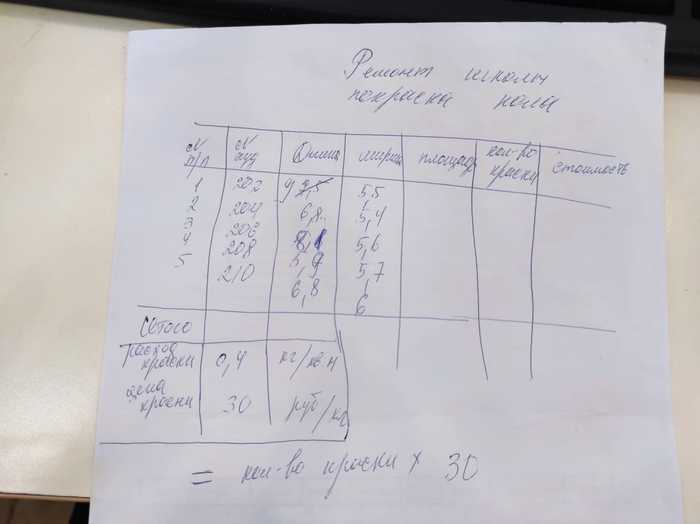 Ремонт школы
покраска полы
N п/п N ауд Длина ширина площадь кол-во краски стоимость
1 202 5,5
2 204 6,8 5,4
3 206 8,1 5,6
4 208 5,9 5,7
5 210 6,8 6
Итого
расход краски 0,4 кг/кв м
цена краски 30 руб/кг
= кол-во краски × 30